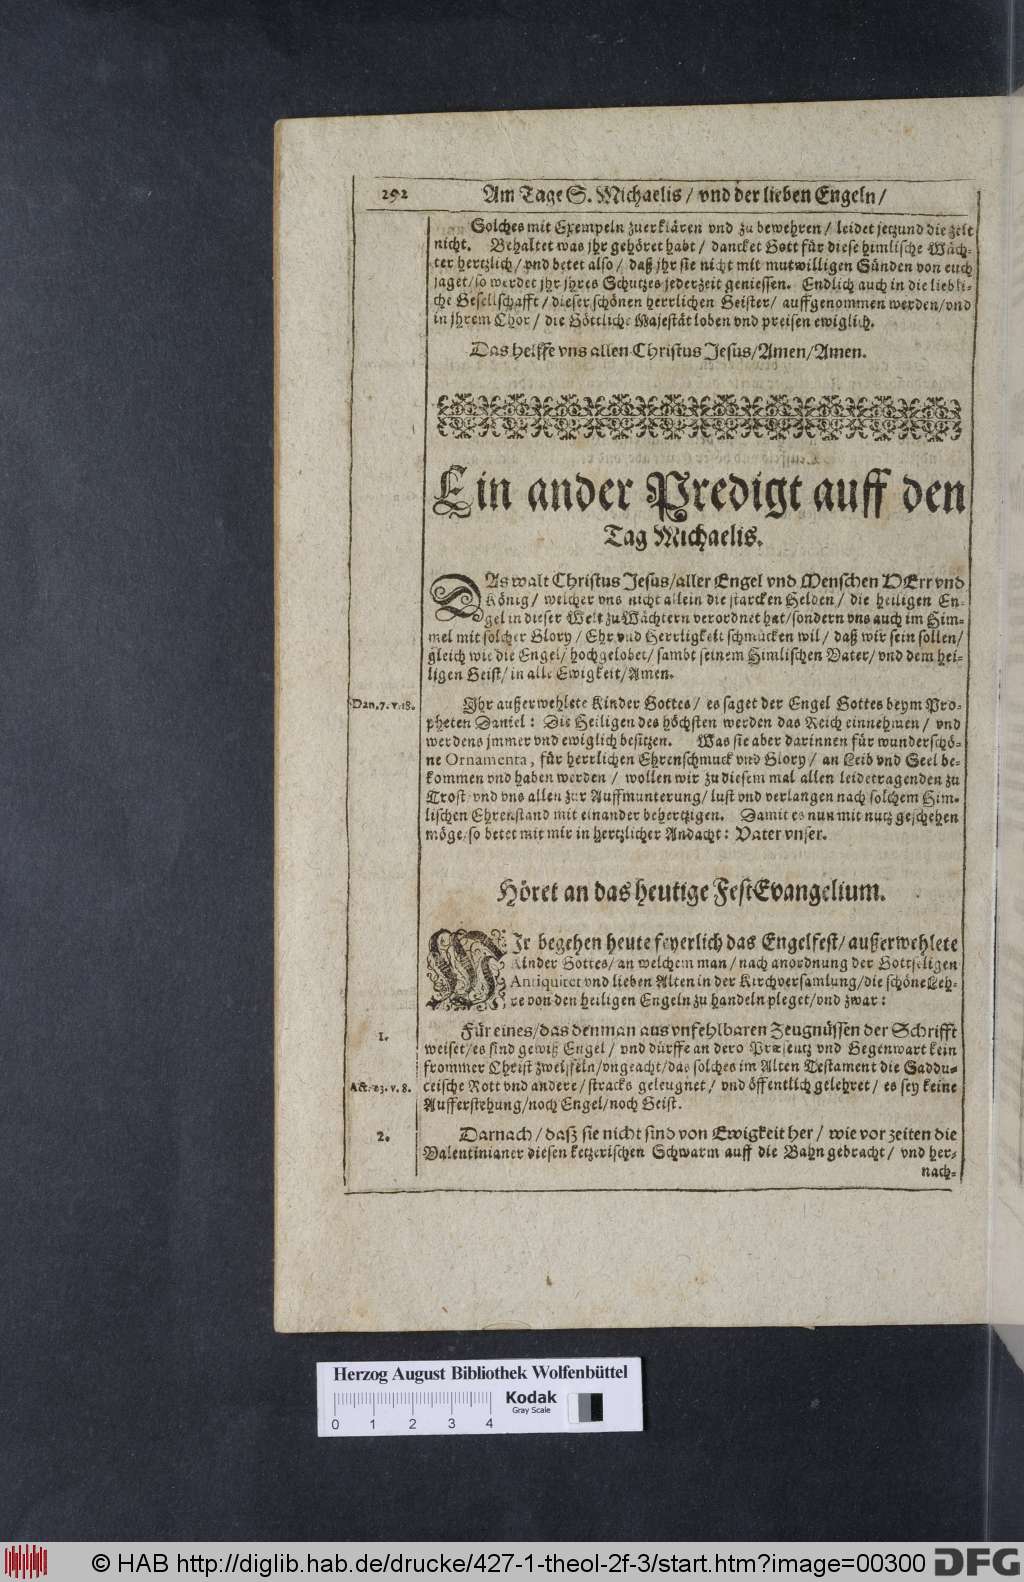 292 Am Tage S. Michaelis / vnd der lieben Engeln /
Solches mit Exempeln zuerklären vnd zu bewehren / leidet jetzund die zeit
nicht. Behaltet was jhr gehöret habt / dancket Gott für diese himlische Wäch-
ter hertzlich / vnd betet also / daß jhr sie nicht mit mutwilligen Sünden von euch
jaget / so werdet jhr jhres Schutzes jederzeit geniessen. Endlich auch in die liebli-
che Gesellschafft / dieser schönen herrlichen Geister / auffgenommen werden / vnd
in jhrem Chor / die Göttliche Majestät loben vnd preisen ewiglich.
Das helffe vns allen Christus Jesus / Amen / Amen.
Ein ander Predigt auff den
Tag Michaelis.
DAs walt Christus Jesus / aller Engel vnd Menschen HErr vnd
König / welcher vns nicht allein die starcken Helden / die heiligen En-
gel in dieser Welt zu Wächtern verordnet hat / sondern vns auch im Him-
mel mit solcher Glory / Ehr vnd Herrligkeit schmücken wil / daß wir sein sollen /
gleich wie die Engel / hochgelobet / sambt seinem Himlischen Vater / vnd dem hei-
ligen Geist / in alle Ewigkeit / Amen.
Dan. 7. v. 18. Ihr außerwehlete Kinder Gottes / es saget der Engel Gottes beym Pro-
pheten Daniel: Die Heiligen des höchsten werden das Reich einnehmen / vnd
werdens jmmer vnd ewiglich besitzen. Was sie aber darinnen für wunderschö-
ne Ornamenta, für herrlichen Ehrenschmuck vnd Glory / an Leib vnd Seel be-
kommen vnd haben werden / wollen wir zu diesem mal allen leidetragenden zu
Trost / vnd vns allen zur Auffmunterung / lust vnd verlangen nach solchem Him-
lischen Ehrenstand mit einander behertzigen. Damit es nun mit nutz geschehen
möge / so betet mit mir in hertzlicher Andacht: Vater vnser.
Höret an das heutige FestEvangelium.
WIr begehen heute feyerlich das Engelfest / außerwehlete
Kinder Gottes / an welchem man / nach anordnung der Gottseligen
Antiquitet vnd lieben Alten in der Kirchversamlung / die schöne Leh-
re von den heiligen Engeln zu handeln pleget / vnd zwar:
1. Für eines / das denman aus vnfehlbaren Zeugnüssen der Schrifft
weiset / es sind gewiß Engel / vnd dürffe an dero Præsentz vnd Gegenwart kein
frommer Christ zweiffeln / vngeacht / das solches im Alten Testament die Saddu-
Act. 23. v. 8. ceische Rott vnd andere / stracks geleugnet / vnd öffentlich gelehret / es sey keine
Aufferstehung / noch Engel / noch Geist.
2. Darnach / daß sie nicht sind von Ewigkeit her / wie vor zeiten die
Valentinianer diesen ketzerischen Schwarm auff die Bahn gebracht / vnd her-
nach-
Herzog August Bibliothek Wolfenbüttel
0 1 2 3 4
Kodak
Gray Scale
© HAB http://diglib.hab.de/drucke/427-1-theol-2f-3/start.htm?image=00300 DFG